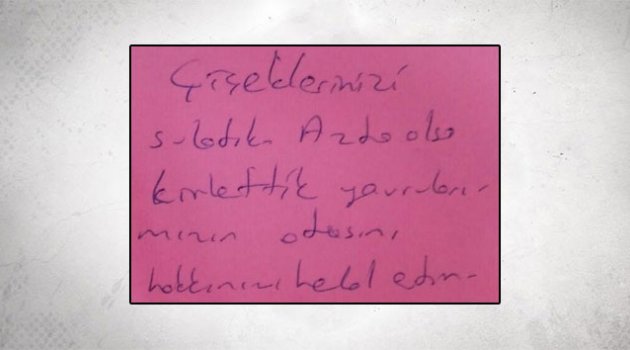 Çiçeklerinizi
suladık. Azda olsa
kirlettik yavruları-
mızın odasını
hakkınızı helal edin.